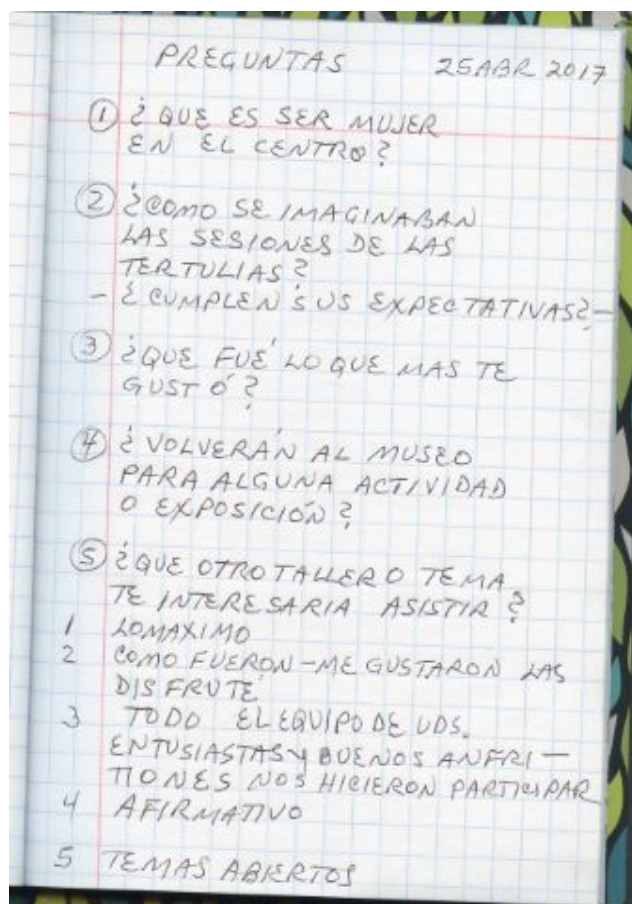 PREGUNTAS 25 ABR 2017
① ¿QUE ES SER MUJER
EN EL CENTRO?
② ¿COMO SE IMAGINABAN
LAS SESIONES DE LAS
TERTULIAS?
- ¿CUMPLEN SUS EXPECTATIVAS? -
③ ¿QUE FUÉ LO QUE MAS TE
GUSTÓ?
④ ¿VOLVERÁN AL MUSEO
PARA ALGUNA ACTIVIDAD
O EXPOSICIÓN?
⑤ ¿QUE OTRO TALLER O TEMA
TE INTERESARIA ASISTIR?
1 LO MAXIMO
2 COMO FUERON - ME GUSTARON LAS
DISFRUTÉ
3 TODO EL EQUIPO DE UDS.
ENTUSIASTAS Y BUENOS ANFRI-
TIONES NOS HICIERON PARTICIPAR
4 AFIRMATIVO
5 TEMAS ABIERTOS